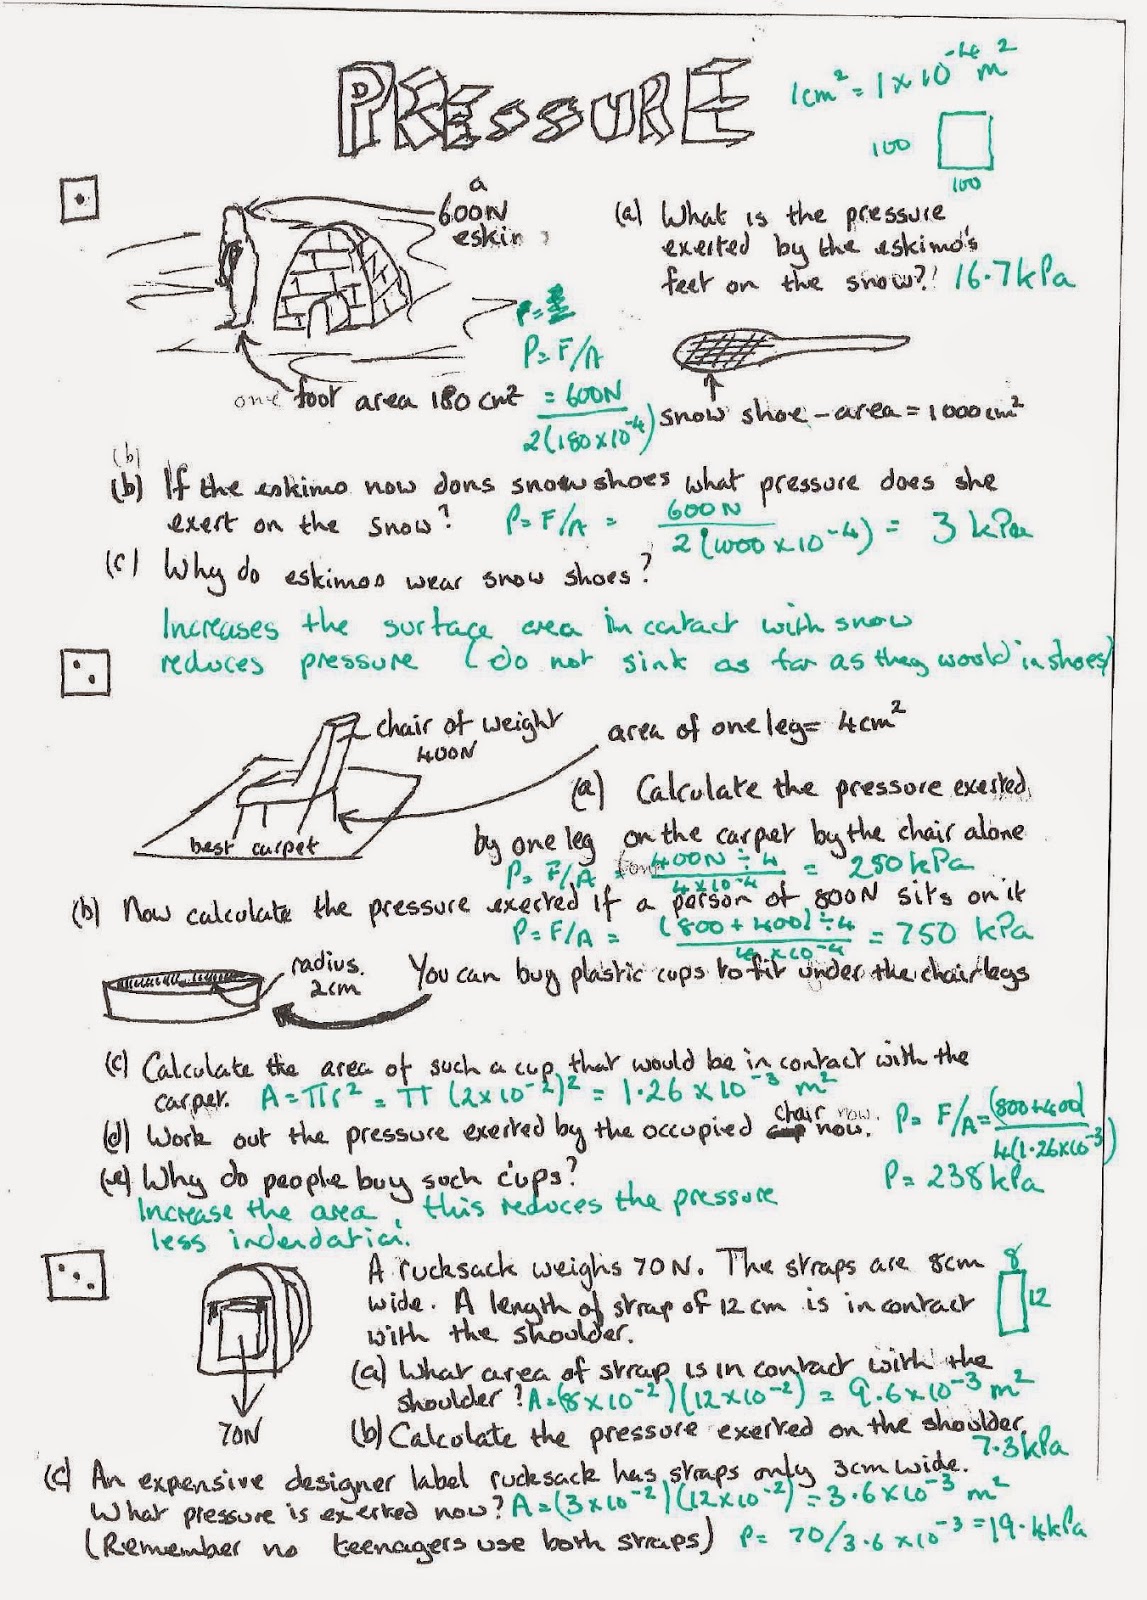 PRESSURE
1cm² = 1 x 10⁻⁴ m²
100
100
a
600N
(a) What is the pressure
exerted by the eskimo's
feet on the snow? 16.7kPa
P=
P= F/A
one foot area 180 cm² = 600N
2(180x10⁻⁴)
snow shoe - area = 1000cm²
(b)
(b) If the eskimo now dons snowshoes what pressure does she
exert on the snow? P=F/A = 600N / 2(1000x10⁻⁴) = 3 kPa
(c) Why do eskimos wear snow shoes?
Increases the surface area in contact with snow
reduces pressure (do not sink as far as they would in shoes)
chair of weight
400N
area of one leg= 4cm²
best carpet
(a) Calculate the pressure exerted
by one leg on the carpet by the chair alone
P= F/A = 400N ÷ 4 / 4x10⁻⁴ = 250kPa
(b) Now calculate the pressure exerted if a person of 800N sits on it
P=F/A = (800+400)÷4 / 4x10⁻⁴ = 750 kPa
radius.
2cm
You can buy plastic cups to fit under the chair legs
(c) Calculate the area of such a cup that would be in contact with the
carpet. A=πr² = π(2x10⁻²)² = 1.26x10⁻³ m²
(d) Work out the pressure exerted by the occupied chair now. now.
P= F/A = (800+400) / 4(1.26x10⁻³)
(e) Why do people buy such cups? P= 238kPa
Increase the area, this reduces the pressure
less indendation.
A rucksack weighs 70N. The straps are 8cm
wide. A length of strap of 12 cm is in contact
with the shoulder.
8
12
(a) What area of strap is in contact with the
shoulder? A=(8x10⁻²)(12x10⁻²) = 9.6x10⁻³ m²
70N
(b) Calculate the pressure exerted on the shoulder.
7.3kPa
(c) An expensive designer label rucksack has straps only 3cm wide.
What pressure is exerted now? A=(3x10⁻²)(12x10⁻²) = 3.6x10⁻³ m²
(Remember no teenagers use both straps) P= 70/3.6x10⁻³ = 19.4kPa